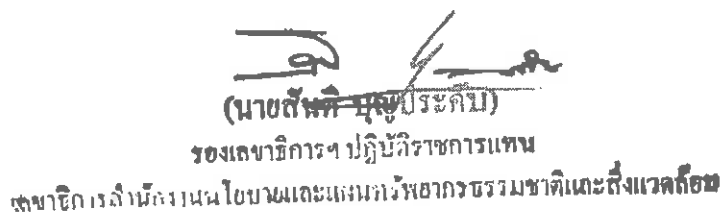 (นายสันติ บุญประคับ)
รองเลขาธิการฯ ปฏิบัติราชการแทน
เลขาธิการสำนักงานนโยบายและแผนทรัพยากรธรรมชาติและสิ่งแวดล้อม